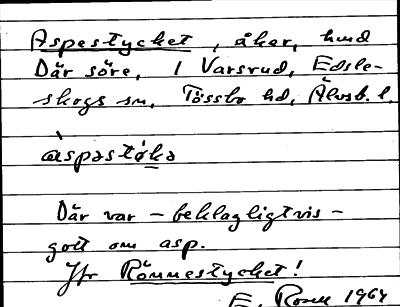 Aspestycket, åker, hmd
Där söre, 1 Varsrud, Edsle-
skogs sn, Tössbo hd, Älvsb. l.
àspəstøkə
Där var - beklagligtvis -
gott om asp.
Jfr Rönnestycket!
E. Rosell 1964